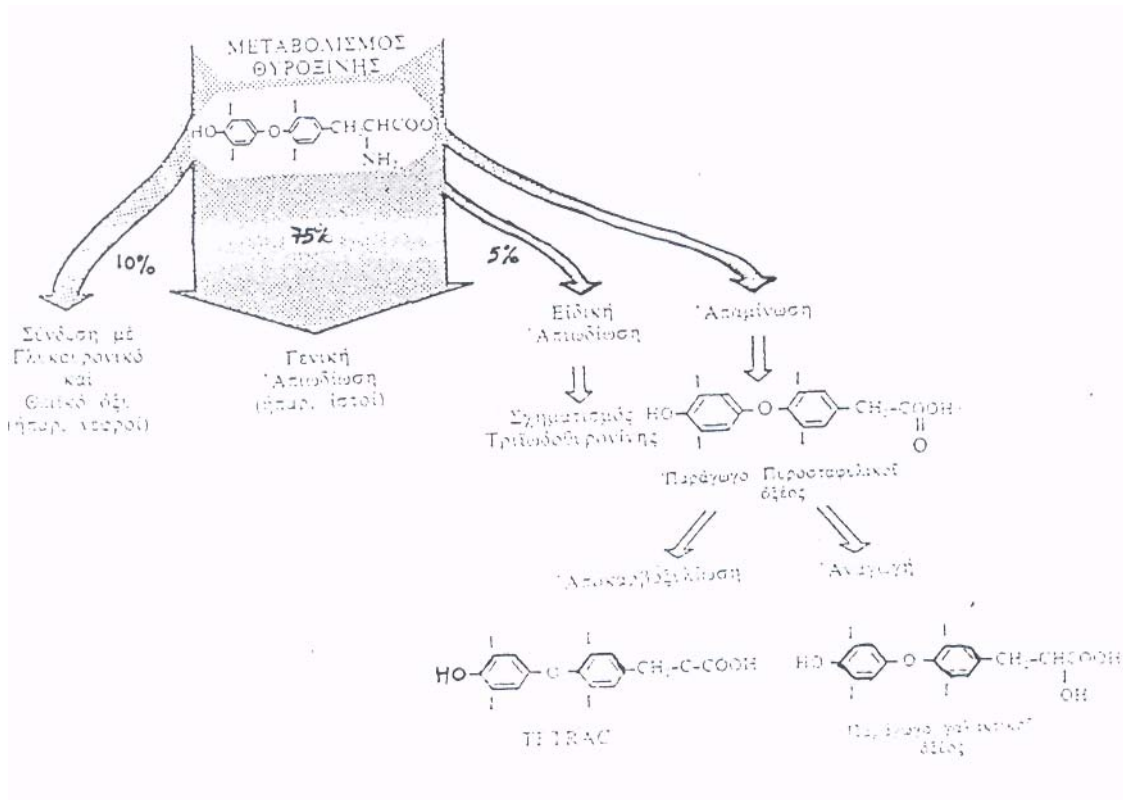 ΜΕΤΑΒΟΛΙΣΜΟΣ
ΘΥΡΟΞΙΝΗΣ
I I
HO O CH2CHCOO
I I NH2
10%
75%
5%
Σύνδεση μέ
Γλυκουρονικό
καί
Θειικό όξύ
Γενική
Ἀπιωδίωση
(ήπαρ, ίστοί)
Εἰδική
Ἀπιωδίωση
Ἀπαμίνωση
Σχηματισμός
Τριϊωδοθυρονίνης
I I
HO O CH2-COOH
I I O
Παράγωγο Πυροσταφυλικοῦ
ὀξέος
Ἀποκαρβοξυλίωση
Ἀναγωγή
I I
HO O CH2-C-COOH
I I
TETRAC
I I
HO O CH2-CHCOOH
I I OH
Παράγωγο γαλακτικοῦ
ὀξέος